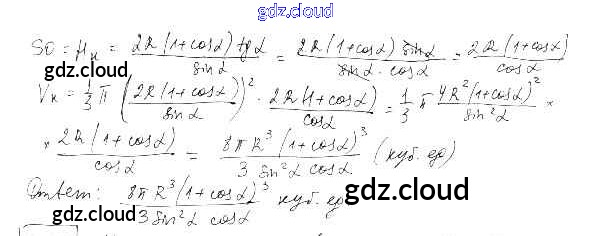 gdz.cloud
SO = H_к = 2R(1+cosα) tgα / sinα = 2R(1+cosα) sinα / sinα · cosα = 2R(1+cosα) / cosα
gdz.cloud
V_к = 1/3 π (2R(1+cosα) / sinα)² · 2R(1+cosα) / cosα = 1/3 π 4R²(1+cosα)² / sin²α ×
× 2R(1+cosα) / cosα = 8πR³(1+cosα)³ / 3 sin²α cosα (куб. ед)
gdz.cloud
Ответ: 8πR³(1+cosα)³ / 3 sin²α cosα куб. ед
gdz.cloud
gdz.cloud